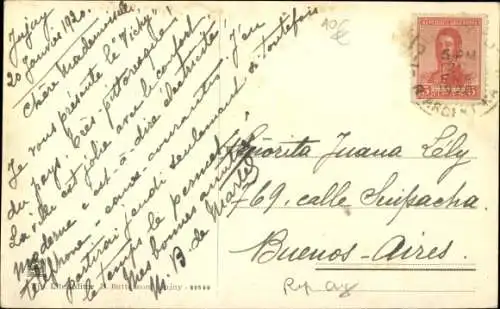 Jujuy
20 Janvier 1920.
Chère Mademoiselle!
Je vous présente le "Vichy"
du pays. Très pittoresque!
La ville est jolie avec le confort
moderne c'est-à-dire électricité
téléphone - eaux-courantes. J'en
partirai jeudi seulement si toutefois
le temps le permet!
Mes bonnes amitiés
M. B. de
Señorita Juana Lély
769. calle Suipacha
Buenos-Aires.
Rep. Arg
10€
5 PM
ARGENTINA
5 5
Jujuy - 00560